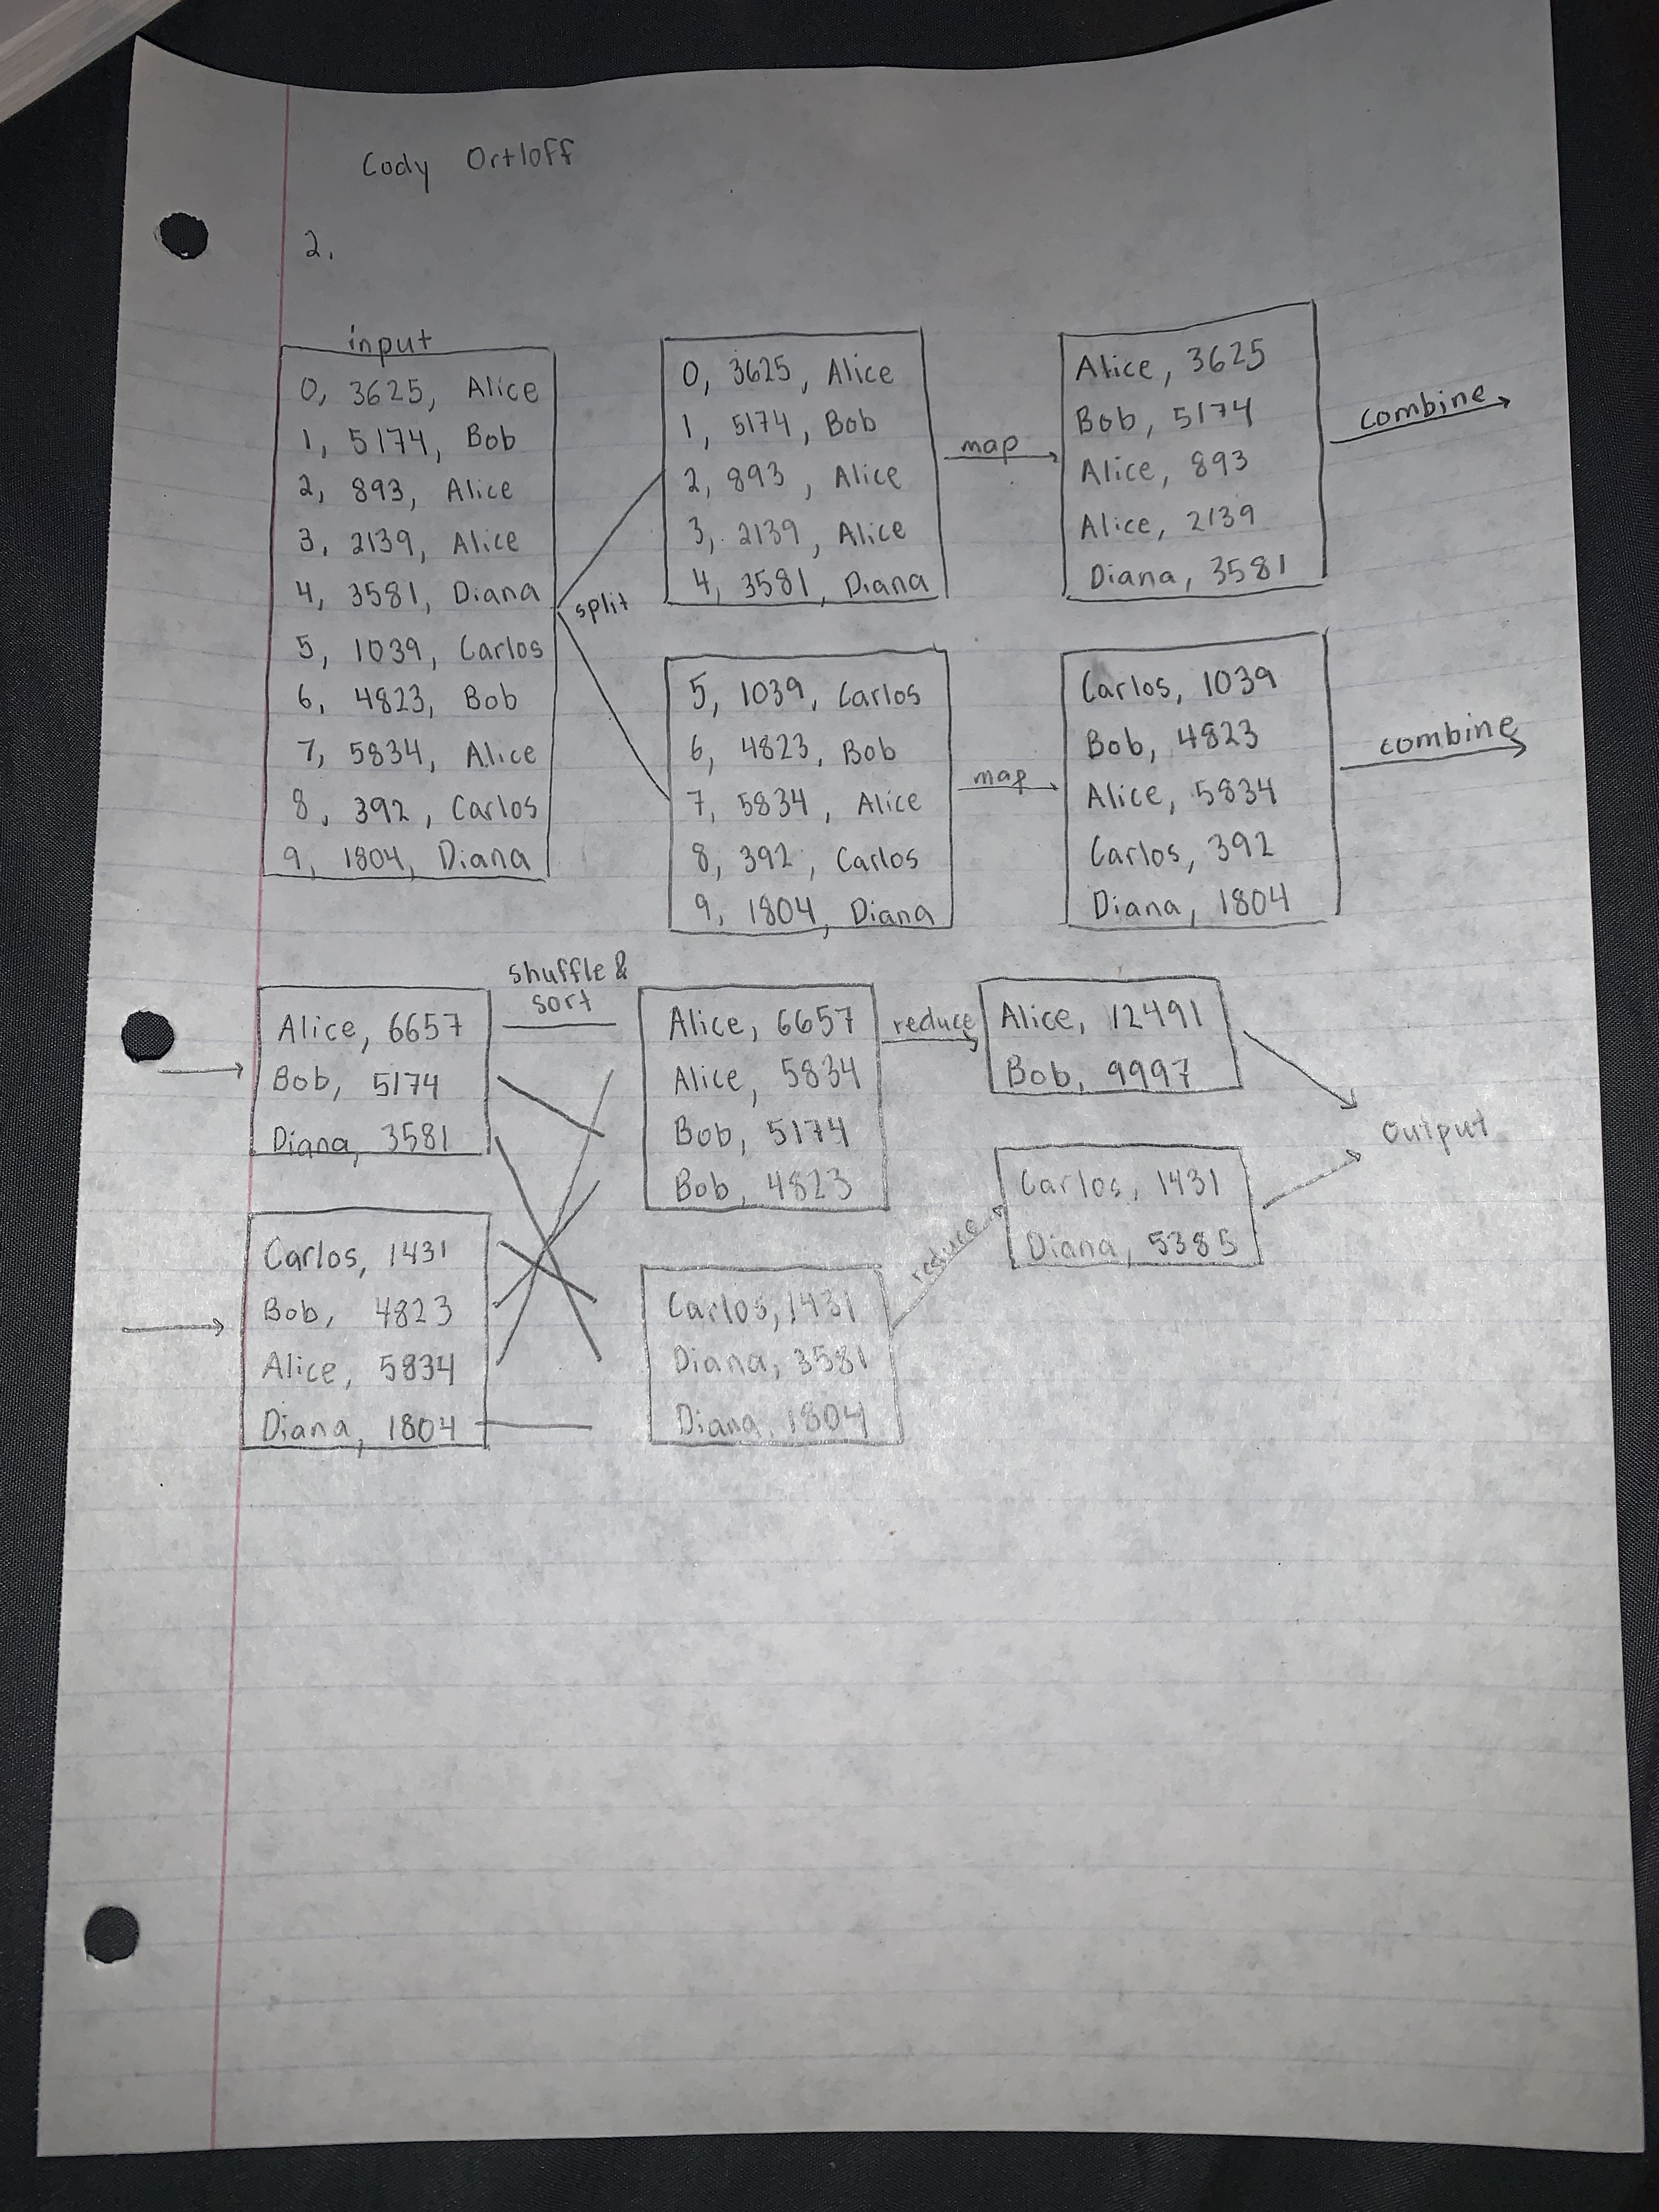 Cody Ortloff
2.
input
0, 3625, Alice
1, 5174, Bob
2, 893, Alice
3, 2139, Alice
4, 3581, Diana
5, 1039, Carlos
6, 4823, Bob
7, 5834, Alice
8, 392, Carlos
9, 1804, Diana
split
0, 3625, Alice
1, 5174, Bob
2, 893, Alice
3, 2139, Alice
4, 3581, Diana
map
Alice, 3625
Bob, 5174
Alice, 893
Alice, 2139
Diana, 3581
combine
5, 1039, Carlos
6, 4823, Bob
7, 5834, Alice
8, 392, Carlos
9, 1804, Diana
map
Carlos, 1039
Bob, 4823
Alice, 5834
Carlos, 392
Diana, 1804
combine
Alice, 6657
Bob, 5174
Diana, 3581
Carlos, 1431
Bob, 4823
Alice, 5834
Diana, 1804
shuffle &
sort
Alice, 6657
Alice, 5834
Bob, 5174
Bob, 4823
reduce
Alice, 12491
Bob, 9997
Carlos, 1431
Diana, 3581
Diana, 1804
reduce
Carlos, 1431
Diana, 5385
Output